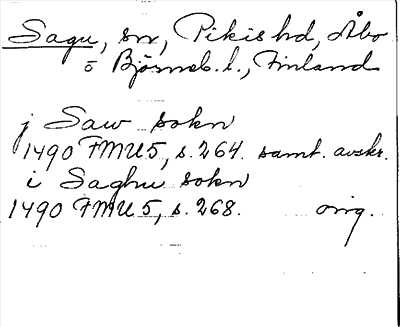 Sagu, sn, Pikis hd, Åbo
o Björneb. l., Finland
j Saw sokn
1490 FMU 5, s. 264. samt. avskr.
i Saghu sokn
1490 FMU 5, s. 268. orig.